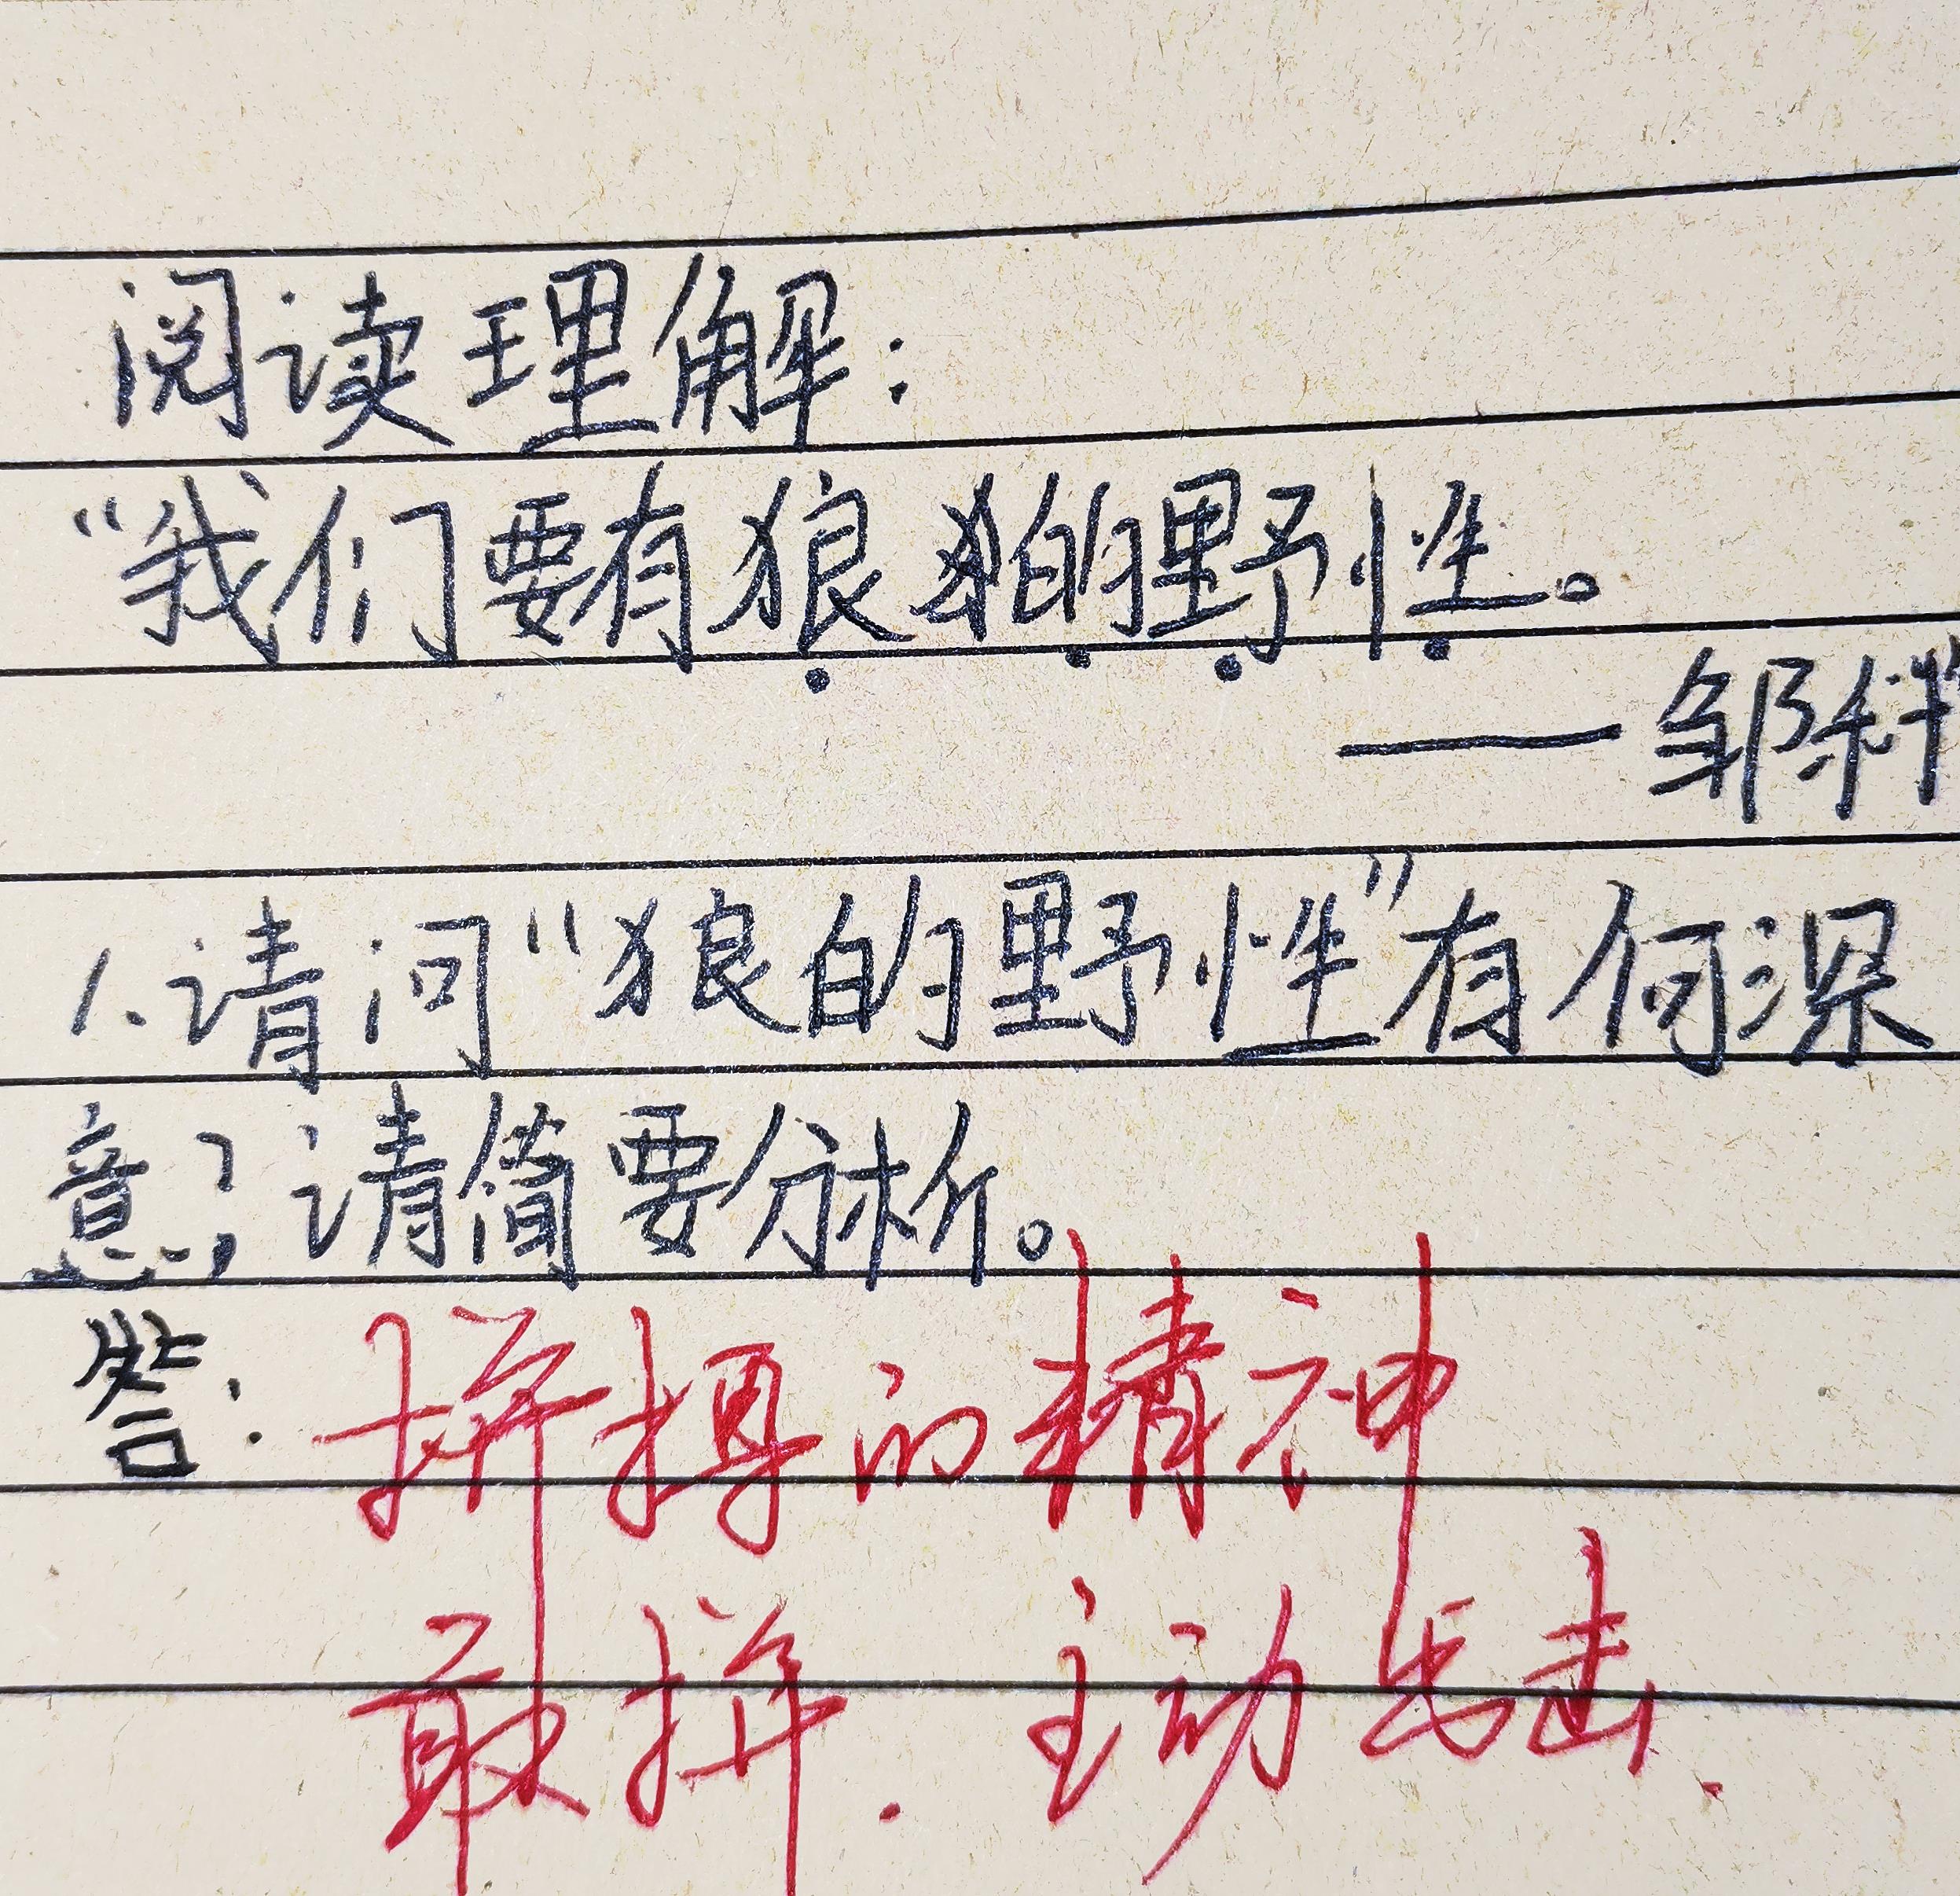 阅读理解：
“我们要有狼的野性。
——邹科
1.请问“狼的野性”有何深
意？请简要分析。
答：拼搏的精神
敢拼.主动出击.